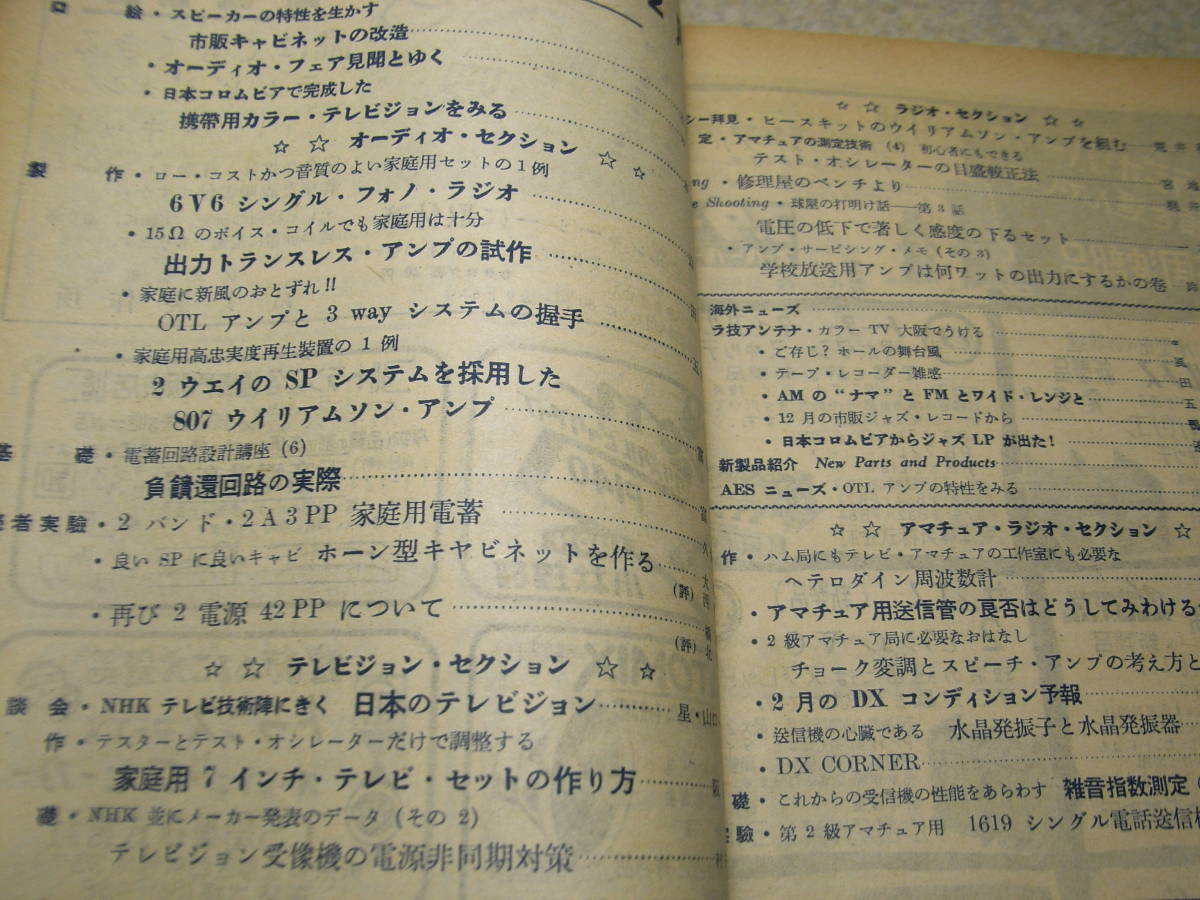 絵・スピーカーの特性を生かす
市販キャビネットの改造
・オーディオ・フェア見聞とゆく
・日本コロムビアで完成した
携帯用カラー・テレビジョンをみる
☆ ☆ オーディオ・セクション ☆ ☆
製 作・ロー・コストかつ音質のよい家庭用セットの1例
6V6 シングル・フォノ・ラジオ
・15Ω のボイス・コイルでも家庭用は十分
出力トランスレス・アンプの試作
・家庭に新風のおとずれ!!
OTL アンプと 3 way システムの握手
・家庭用高忠実度再生装置の 1 例
2 ウエイの SP システムを採用した
807 ウイリアムソン・アンプ
基 礎・電蓄回路設計講座 (6)
負饋還回路の実際
者実験・2 バンド・2A3PP 家庭用電蓄
・良い SP に良いキャビ ホーン型キヤビネットを作る
(評)
・再び 2 電源 42PP について
(評) 北
☆ ☆ テレビジョン・セクション ☆ ☆
談 会・NHK テレビ技術陣にきく 日本のテレビジョン 星・山
作・テスターとテスト・オシレーターだけで調整する
家庭用 7 インチ・テレビ・セットの作り方
礎・NHK 並にメーカー発表のデータ (その 2)
テレビジョン受像機の電源非同期対策
☆ ☆ ラジオ・セクション ☆ ☆
シー拝見・ヒースキットのウイリアムソン・アンプを組む 荒井
定・アマチュアの測定技術 (4) 初心者にもできる
テスト・オシレーターの目盛較正法
ng・修理屋のベンチより
Shooting・球屋の打明け話──第3話
電圧の低下で著しく感度の下るセット
・アンプ・サービシング・メモ (その 3)
学校放送用アンプは何ワットの出力にするかの巻
海外ニューズ
ラ技アンテナ・カラー TV 大阪でうける
・ご存じ? ホールの舞台風
・テープ・レコーダー雑感
・AM の “ナマ” と FM とワイド・レンジと
・12 月の市販ジャズ・レコードから
・日本コロムビアからジャズ LP が出た!
新製品紹介 New Parts and Products
AES ニューズ・OTL アンプの特性をみる
☆ ☆ アマチュア・ラジオ・セクション ☆
作・ハム局にもテレビ・アマチュアの工作室にも必要な
ヘテロダイン周波数計
・アマチュア用送信管の良否はどうしてみわける
・2 級アマチュア局に必要なおはなし
チョーク変調とスピーチ・アンプの考え方と
・2 月の DX コンディション予報
・送信機の心臓である 水晶発振子と水晶発振器
・DX CORNER
礎・これからの受信機の性能をあらわす 雑音指数測定
験・第 2 級アマチュア用 1619 シングル電話送信機